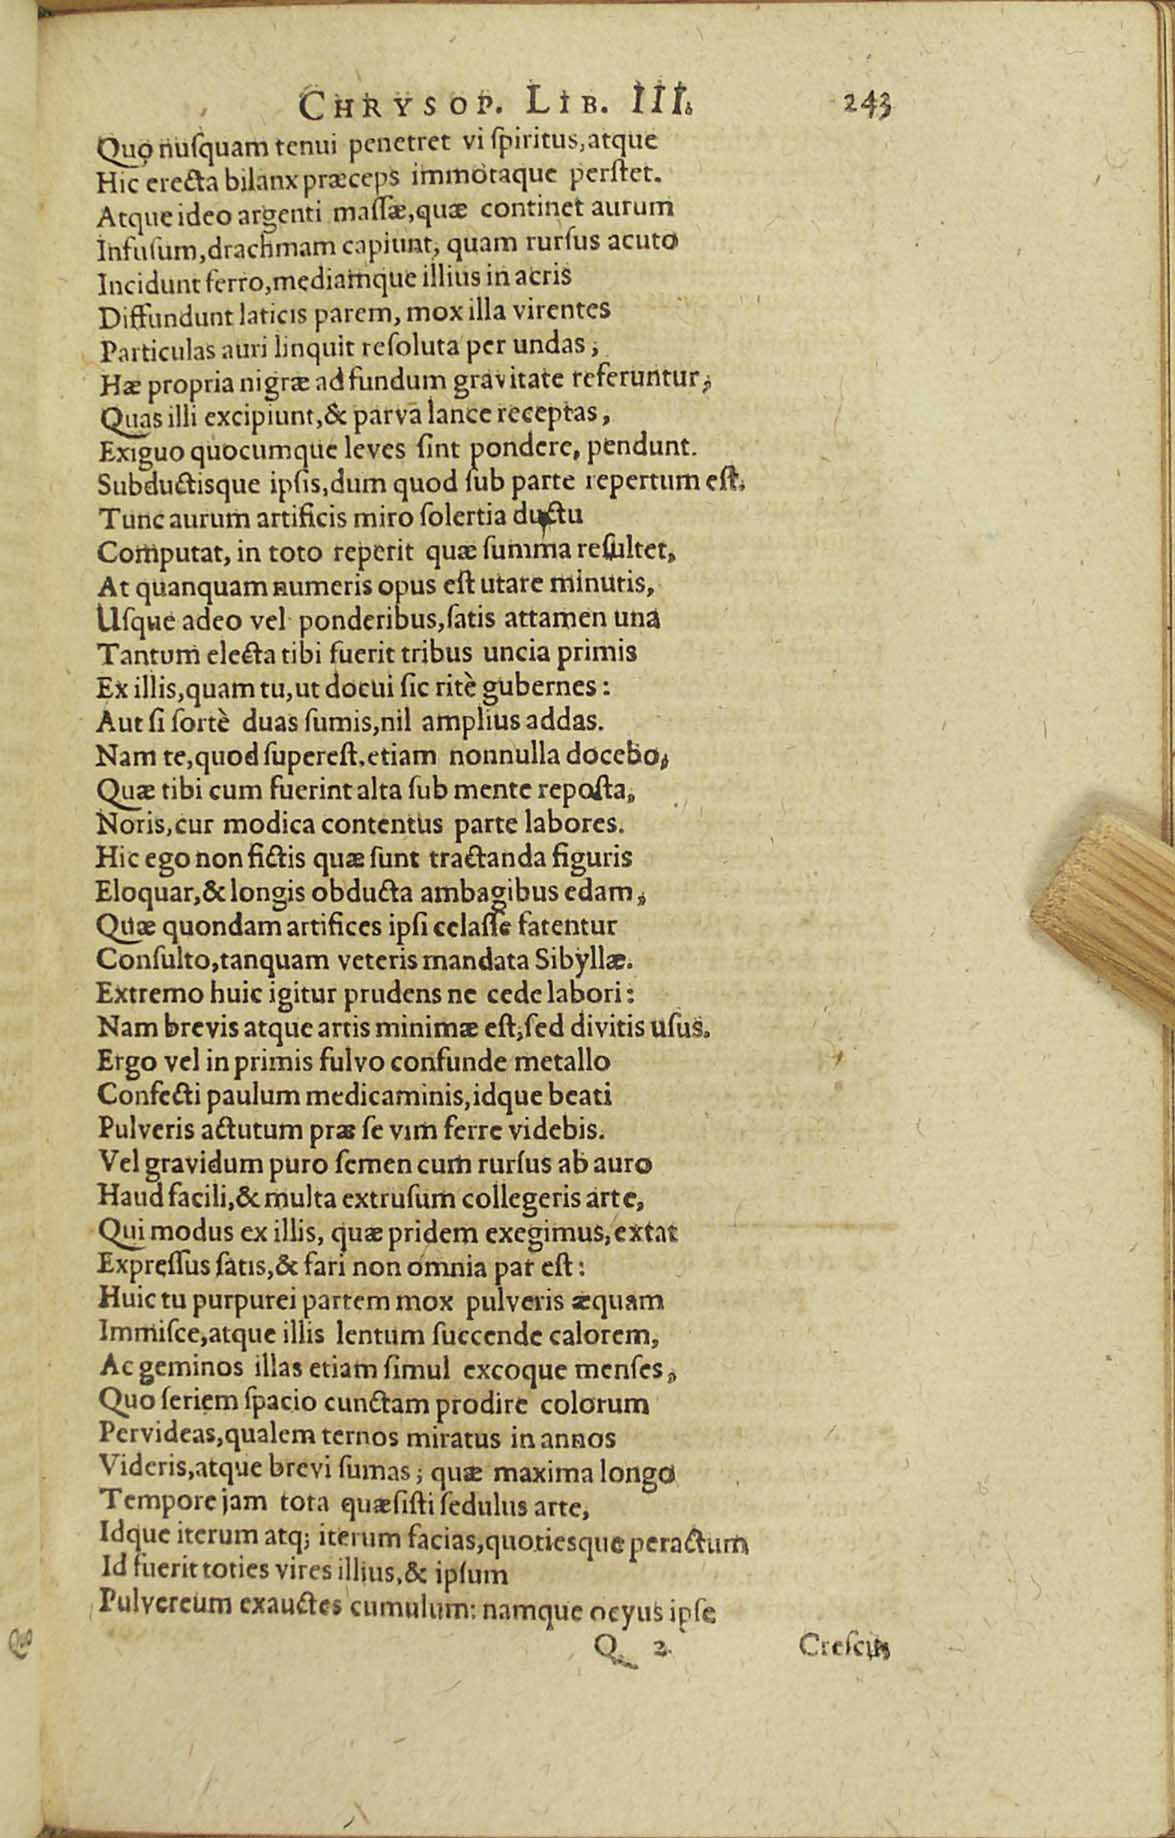 CHRYSOP. LIB. III. 243
Quo nuſquam tenui penetret vi ſpiritus, atque
Hic erecta bilanx præceps immotaque perſtet.
Atque ideo argenti maſſæ, quæ continet aurum
Infuſum, drachmam capiunt, quam rurſus acuto
Incidunt ferro, mediamque illius in acris
Diffundunt laticis parem, mox illa virentes
Particulas auri linquit reſoluta per undas;
Hæ propria nigræ ad fundum gravitate referuntur;
Quas illi excipiunt, & parva lance receptas,
Exiguo quocumque leves ſint pondere, pendunt.
Subductisque ipſis, dum quod ſub parte repertum eſt.
Tunc aurum artificis miro ſolertia ductu
Computat, in toto reperit quæ ſumma reſultet,
At quanquam numeris opus eſt utare minutis,
Uſque adeo vel ponderibus, ſatis attamen una
Tantum electa tibi fuerit tribus uncia primis
Ex illis, quam tu, ut docui ſic ritè gubernes:
Aut ſi fortè duas ſumis, nil amplius addas.
Nam te, quod ſupereſt, etiam nonnulla docebo,
Quæ tibi cum fuerint alta ſub mente repoſta,
Noris, cur modica contentus parte labores.
Hic ego non fictis quæ ſunt tractanda figuris
Eloquar, & longis obducta ambagibus edam;
Quæ quondam artifices ipſi celaſſe fatentur
Conſulto, tanquam veteris mandata Sibyllæ.
Extremo huic igitur prudens ne cede labori:
Nam brevis atque artis minimæ eſt; ſed divitis uſus.
Ergo vel in primis fulvo confunde metallo
Confecti paulum medicaminis, idque beati
Pulveris actutum præ ſe vim ferre videbis.
Vel gravidum puro ſemen cum rurſus ab auro
Haud facili, & multa extruſum collegeris arte,
Qui modus ex illis, quæ pridem exegimus, extat
Expreſſus ſatis, & fari non omnia par eſt:
Huic tu purpurei partem mox pulveris æquam
Immiſce, atque illis lentum ſuccende calorem,
Ac geminos illas etiam ſimul excoque menſes,
Quo ſeriem ſpacio cunctam prodire colorum
Pervideas, qualem ternos miratus in annos
Videris, atque brevi ſumas; quæ maxima longo
Tempore jam tota quæſiſti ſedulus arte,
Idque iterum atq; iterum facias, quotiesque peractum
Id fuerit toties vires illius, & ipſum
Pulvereum exauctes cumulum: namque ocyus ipſe
Q 2 Creſcit